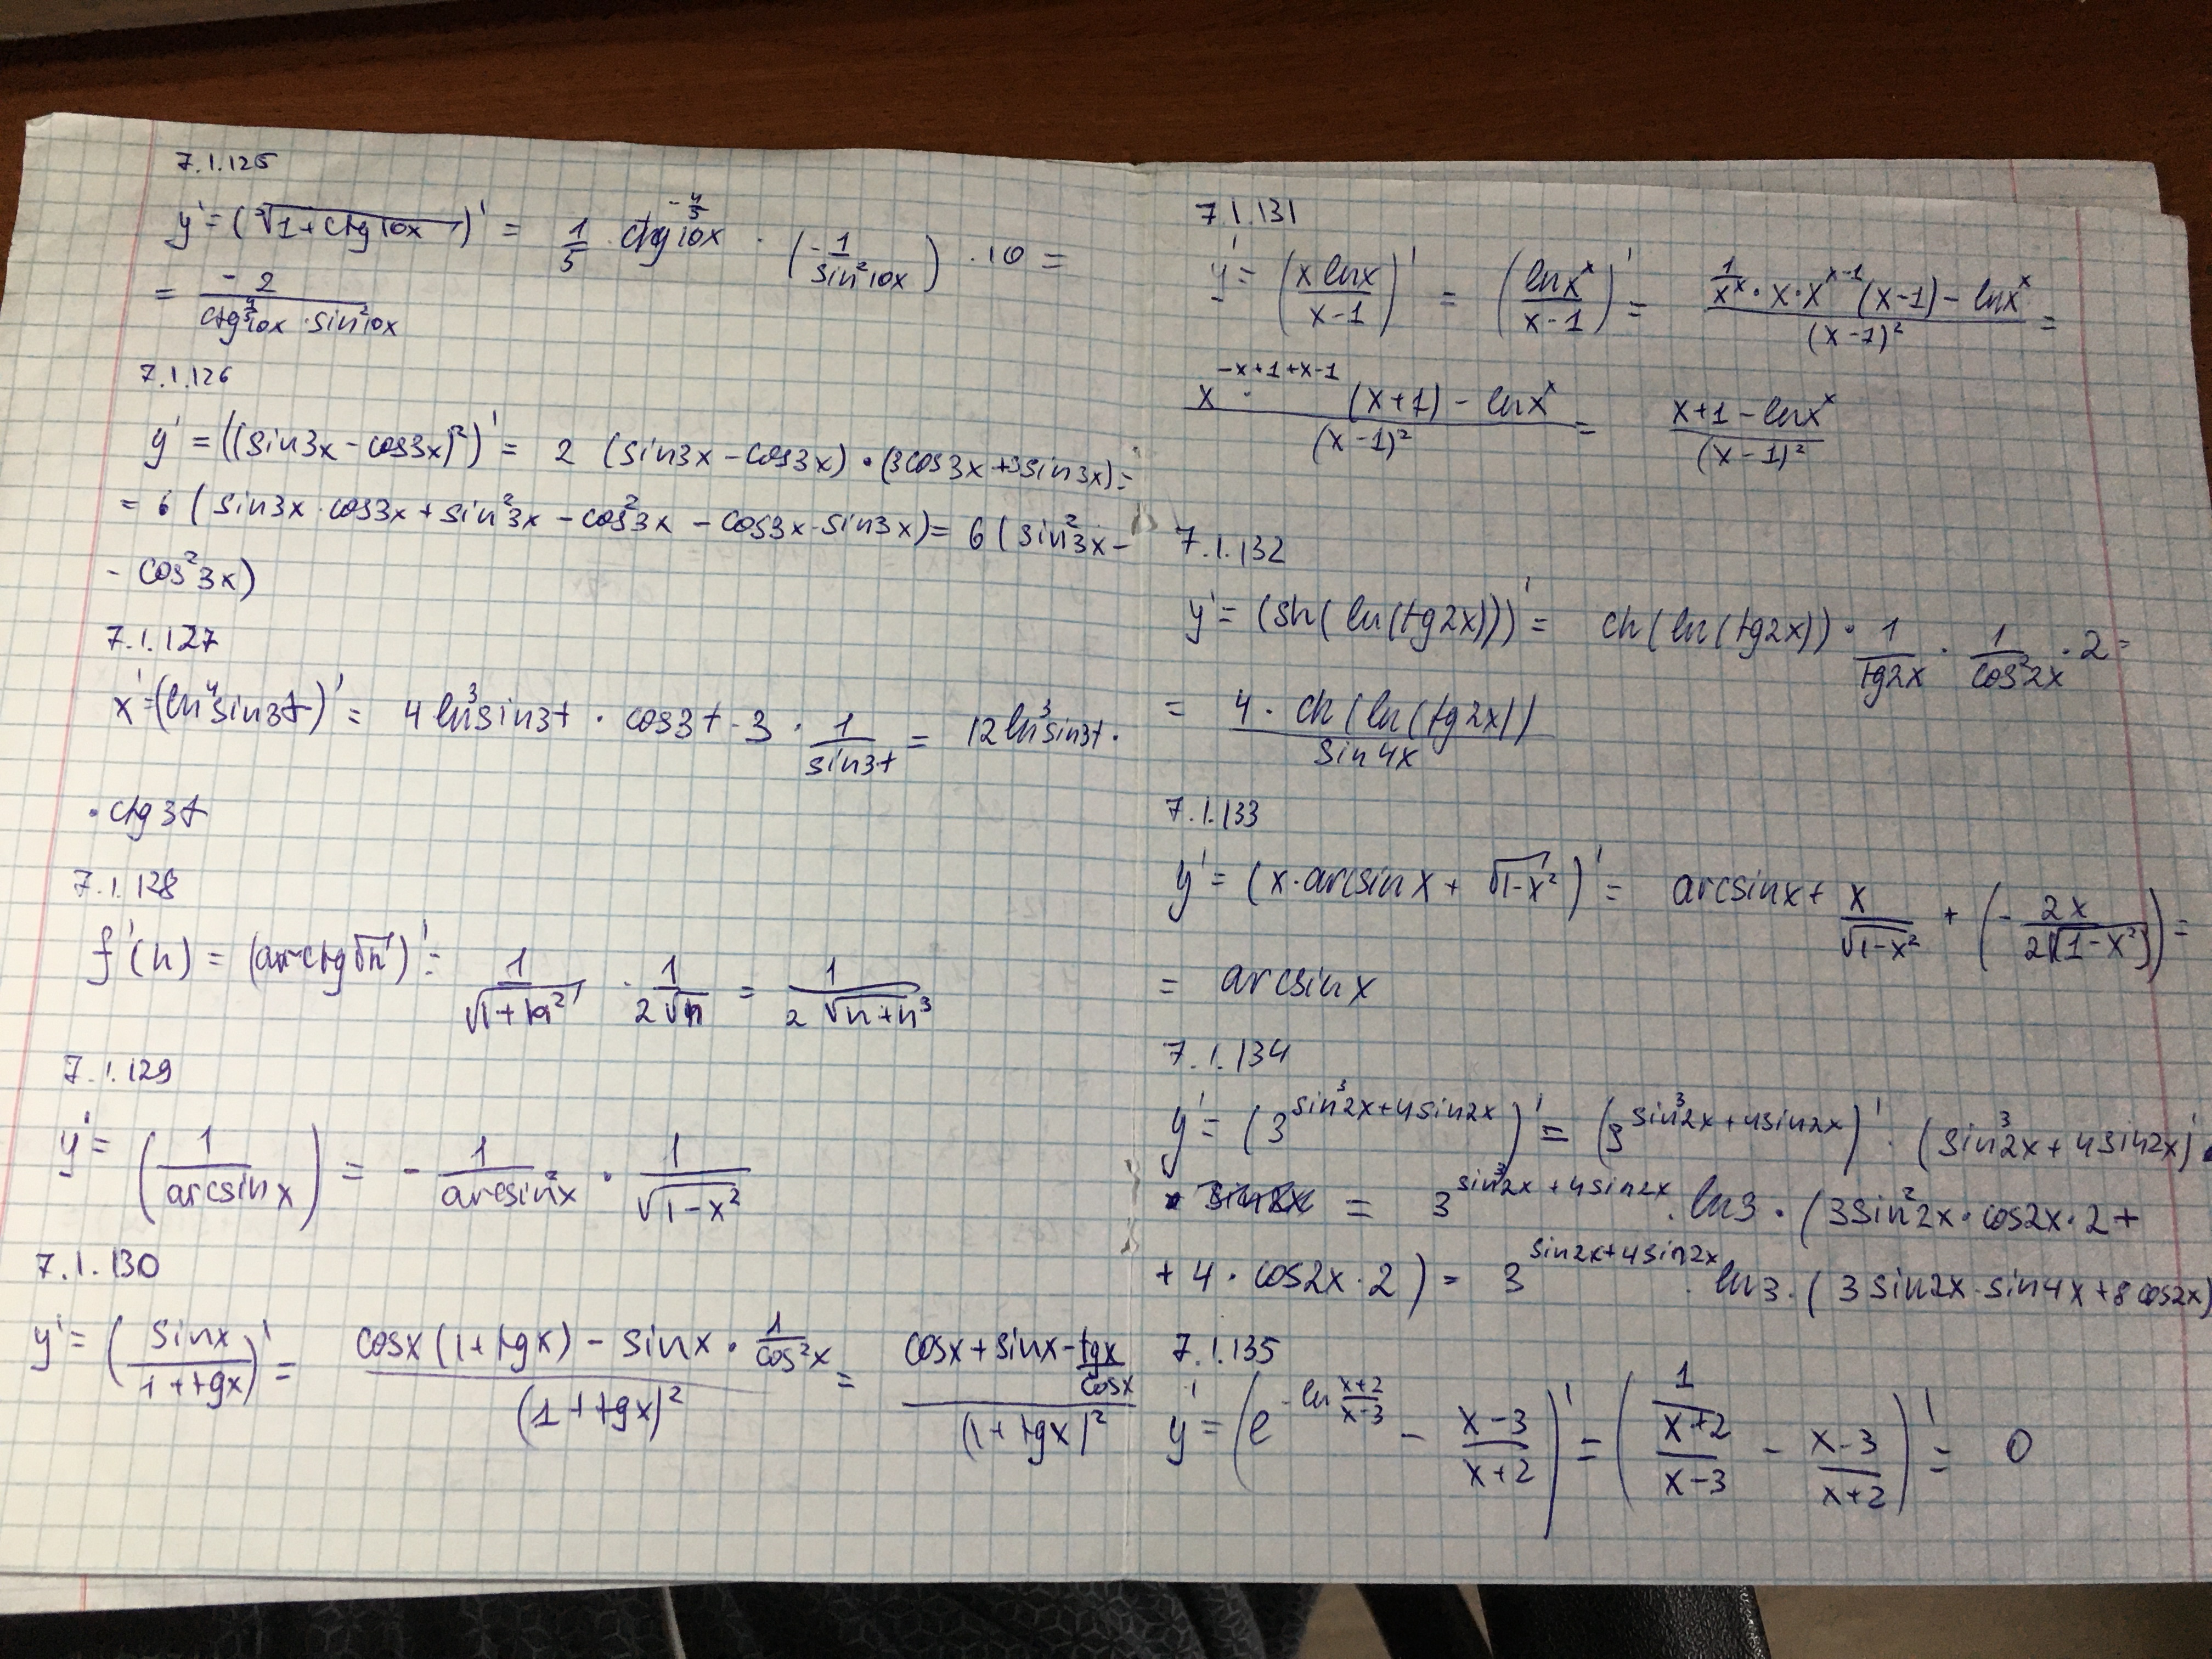 7.1.125
y' = (⁵√(1+ctg10x))' = 1/5 · ctg10x^(-4/5) · (-1/sin²10x) · 10 =
= -2/(ctg^(4/5)10x · sin²10x)
7.1.126
y' = ((sin3x - cos3x)²)' = 2 (sin3x - cos3x) · (3cos3x + 3sin3x) =
= 6 (sin3x · cos3x + sin²3x - cos²3x - cos3x · sin3x) = 6 (sin²3x -
- cos²3x)
7.1.127
x' = (ln⁴sin3t)' = 4 ln³sin3t · cos3t · 3 · 1/sin3t = 12 ln³sin3t ·
· ctg3t
7.1.128
f'(n) = (arctg√n)' = 1/√(1+n²) · 1/(2√n) = 1/(2√(n+n³))
7.1.129
y' = (1/arcsinx) = - 1/arcsin²x · 1/√(1-x²)
7.1.130
y' = (sinx/(1+tgx))' = (cosx(1+tgx) - sinx · 1/cos²x)/(1+tgx)² = (cosx + sinx - tgx/cosx)/(1+tgx)²
7.1.131
y' = (xlnx/(x-1))' = (lnx^x/(x-1))' = (1/x^x · x · x^(x-1)(x-1) - lnx^x)/(x-1)² =
(x^(-x+1+x-1) · (x+1) - lnx^x)/(x-1)² = (x+1-lnx^x)/(x-1)²
7.1.132
y' = (sh(ln(tg2x)))' = ch(ln(tg2x)) · 1/tg2x · 1/cos²2x · 2 =
= 4 · ch(ln(tg2x))/sin4x
7.1.133
y' = (x · arcsinx + √(1-x²))' = arcsinx + x/√(1-x²) + (- 2x/(2√(1-x²))) =
= arcsinx
7.1.134
y' = (3^(sin³2x+4sin2x))' = (3^(sin³2x+4sin2x))' · (sin³2x+4sin2x)' ·
= 3^(sin³2x+4sin2x) · ln3 · (3sin²2x · cos2x · 2 +
+ 4 · cos2x · 2) = 3^(sin2x+4sin2x) · ln3 · (3sin2x · sin4x + 8cos2x)
7.1.135
y' = (e^(-ln((x+2)/(x-3))) - (x-3)/(x+2))' = (1/((x+2)/(x-3)) - (x-3)/(x+2))' = 0